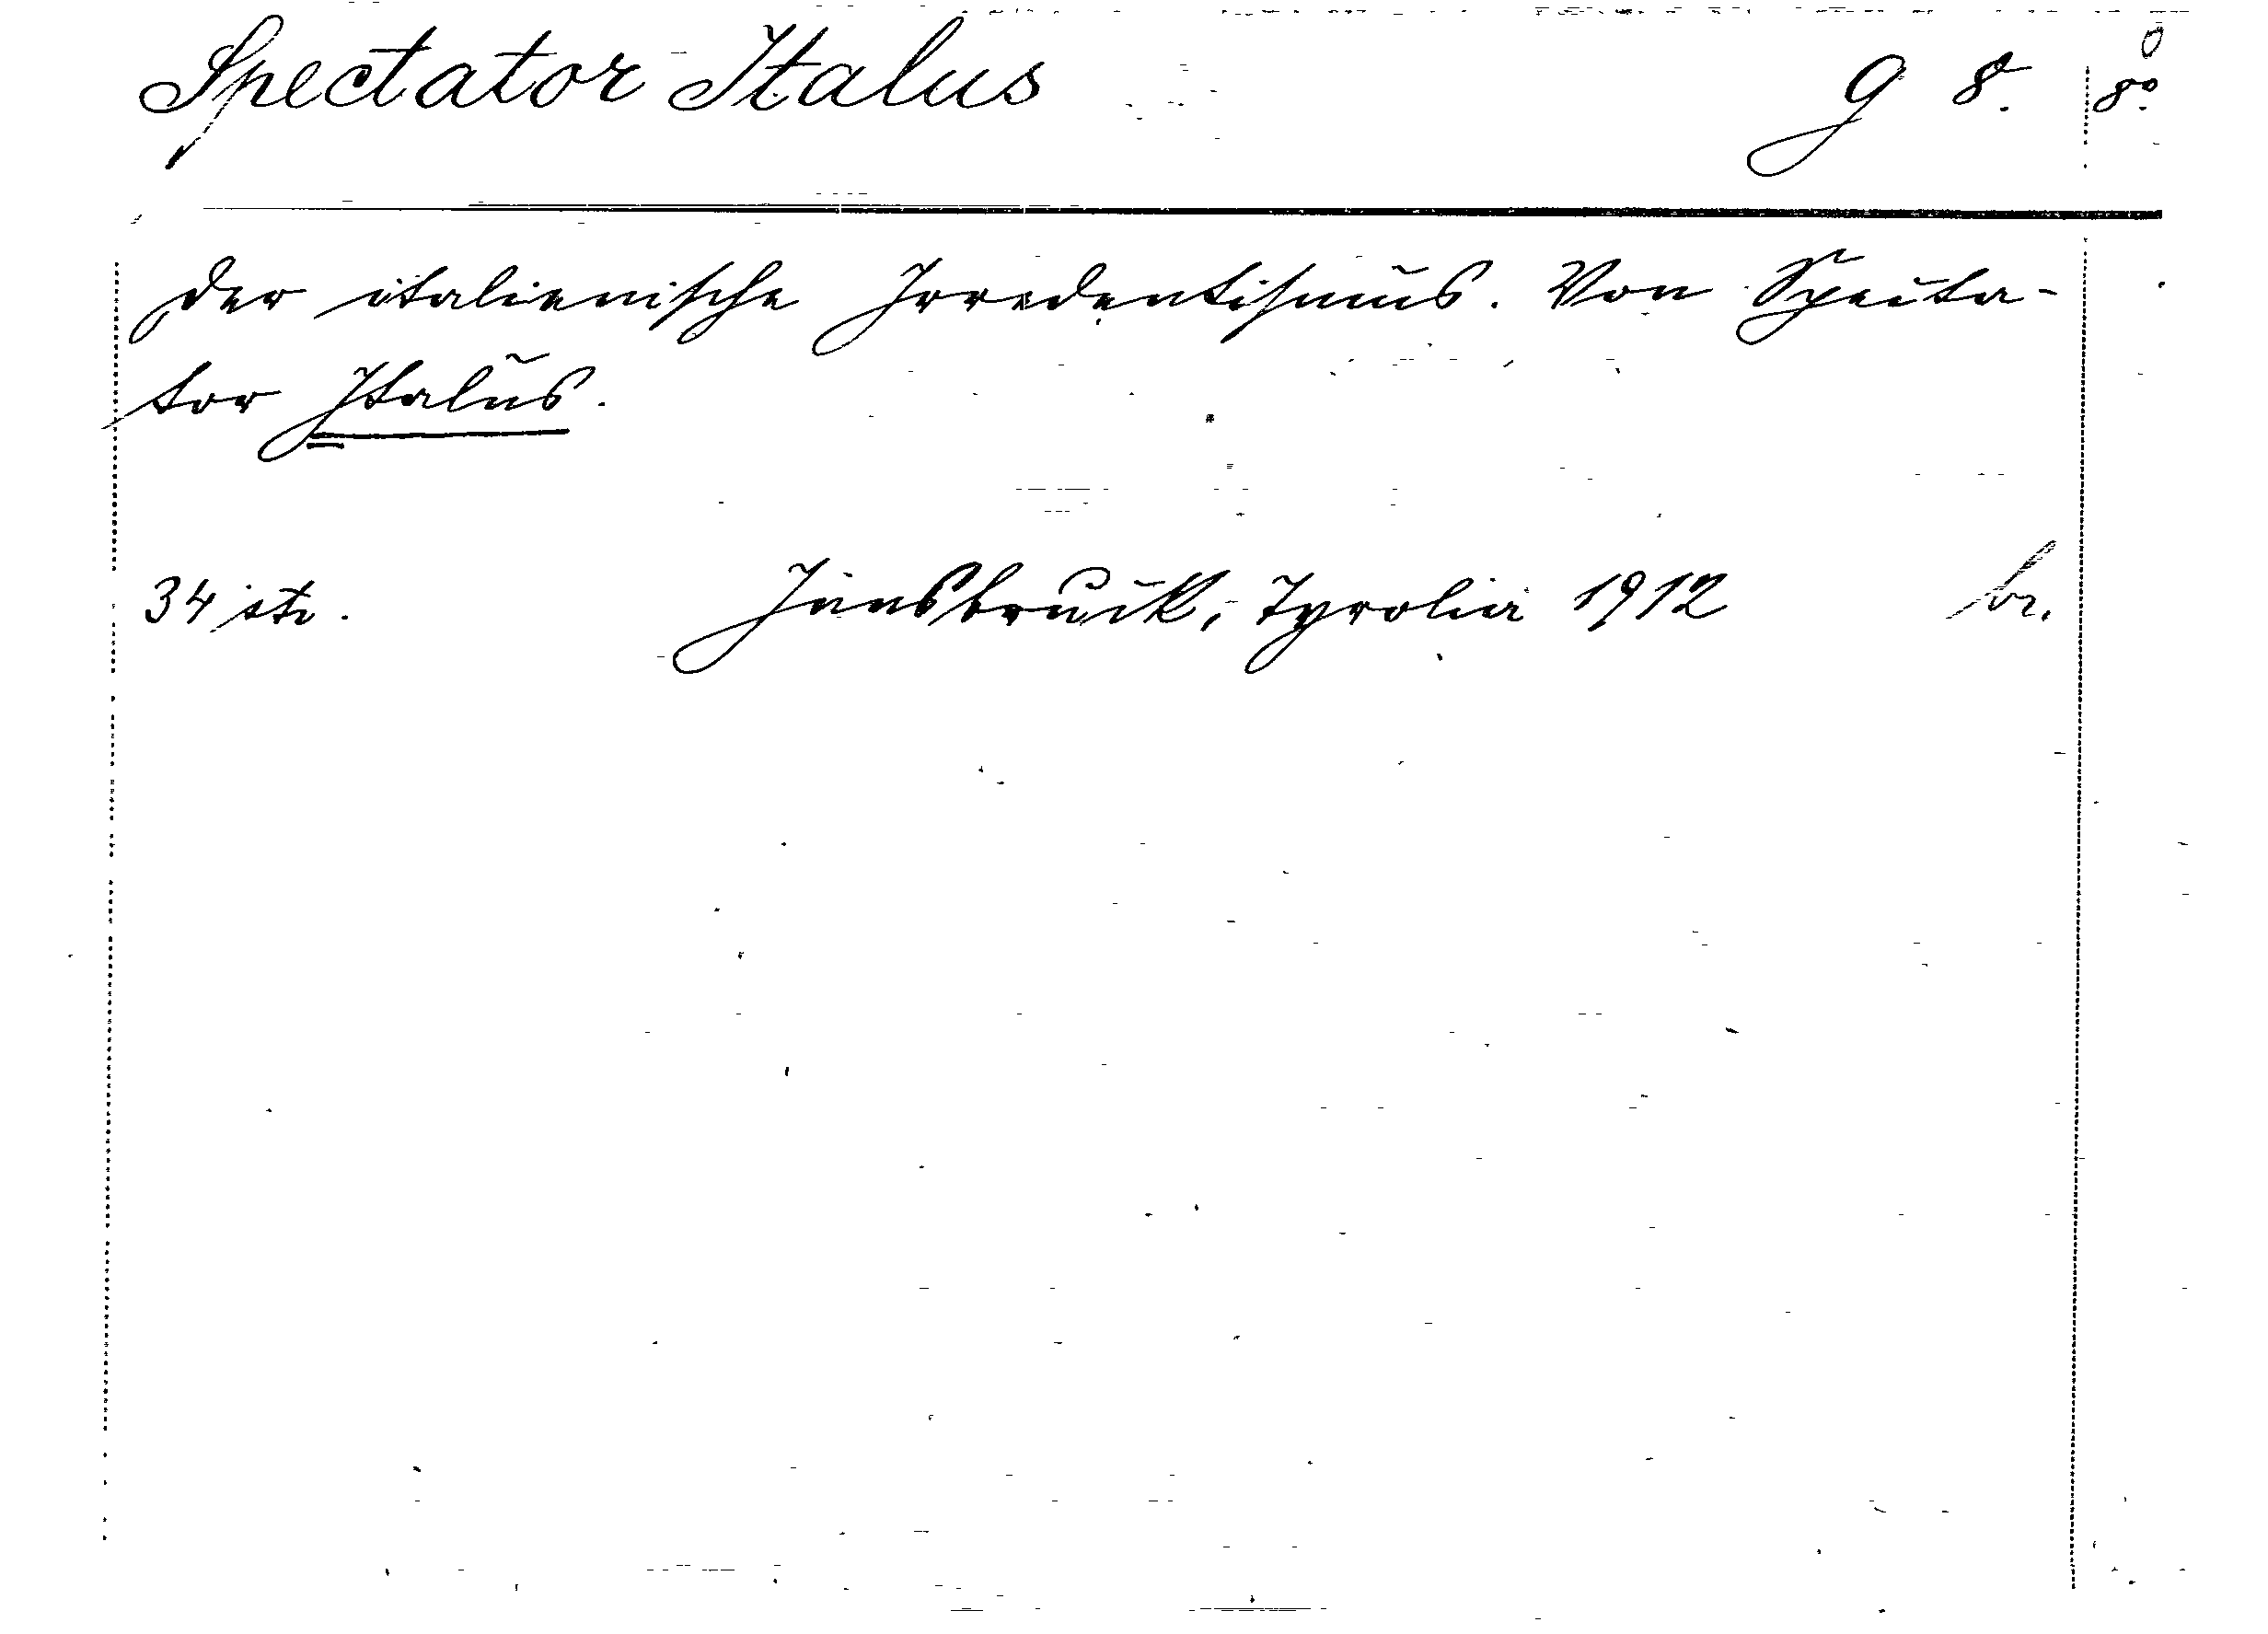 Spectator Italus g 8. 8º
Der italienische Irredentismus. Von Specta-
tor Italus.
34 str. Innsbruck, Tyrolia 1912 br.